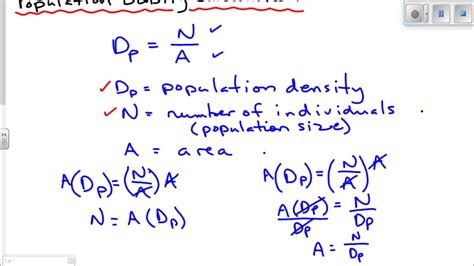 Population Density
D_p = N/A ✓ ✓
✓ D_p = population density
✓ N = number of individuals
(population size)
A = area
A(D_p) = (N/A) A
N = A(D_p)
A(D_p) = (N/A) A
A(D_p)/D_p = N/D_p
A = N/D_p